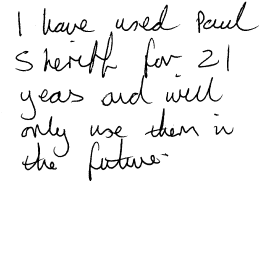 I have used Paul
Sheriff for 21
years and will
only use them in
the future.